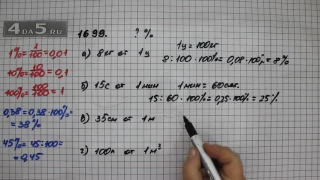 4DS.ru
1699. ?%
1% = 1/100 = 0,01
10% = 10/100 = 0,1
100% = 100/100 = 1
0,38 = 0,38·100% =
= 38%
45% = 45:100 =
= 0,45
а) 8кг от 1ц 1ц = 100кг
8:100·100% = 0,08·100% = 8%
б) 15с от 1мин 1мин = 60сек.
15:60·100% = 0,25·100% = 25%
в) 35см от 1м
г) 100л от 1м³